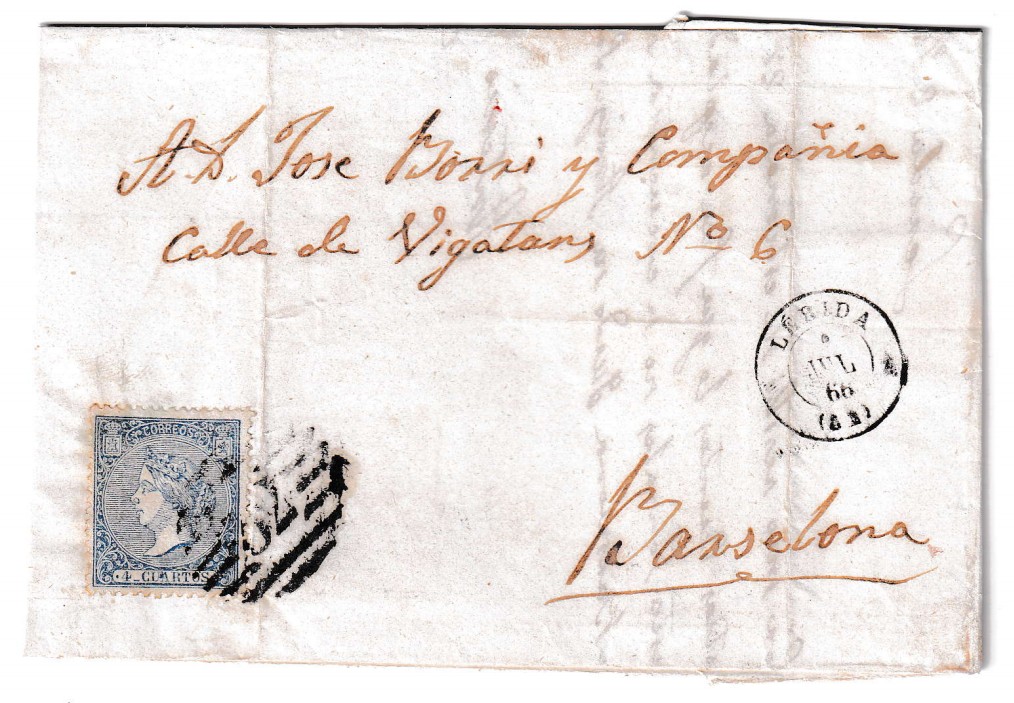 A D. Jose Borri y Compañia
Calle de Vigatans Nº 6
LÉRIDA
6
JUL
66
CORREOS
4 CUARTOS
Barselona